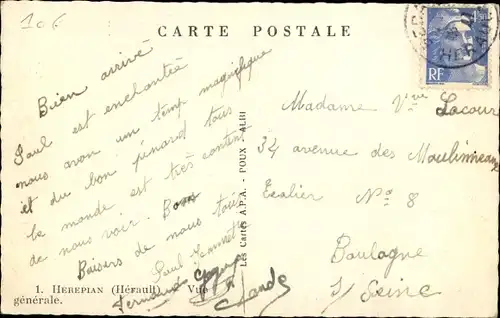 106
CARTE POSTALE
4F50
RF
HERAULT
Bien arrivé
Paul est enchantée
nous avon un temp magnifique
et du bon pinard tous
le monde est très content
de nous voir. Bons
Baisers de nous tous
Paul Jeannette
Fernand
Claude
Les Cartes A.P.A. - POUX - ALBI
Madame Vve Lacour
34 avenue des Moulineaux
Escalier No 8
Boulogne
s/ Seine
1. HEREPIAN (Hérault). Vue
générale.